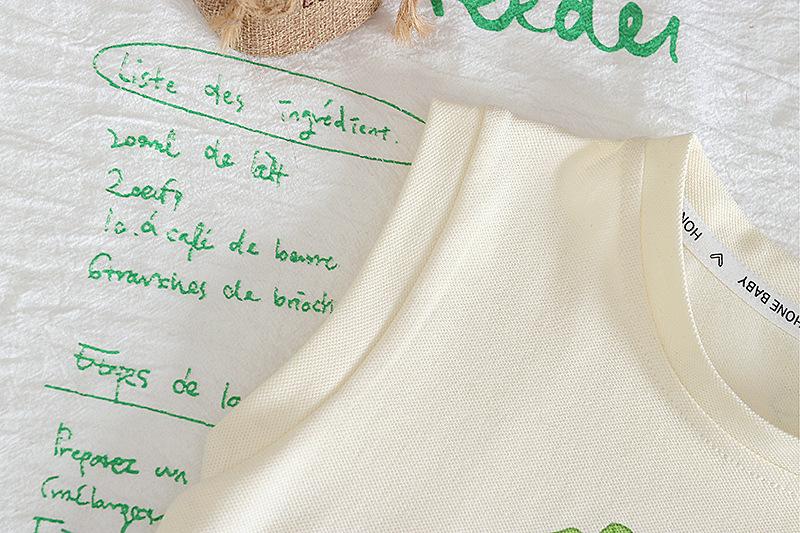 Liste des ingrédient.
200ml de lait
2oeufs
1c.à café de beurre
6tranches de brioch
Etapes de la
Preparez un
(mélangez
HON
HONE BABY